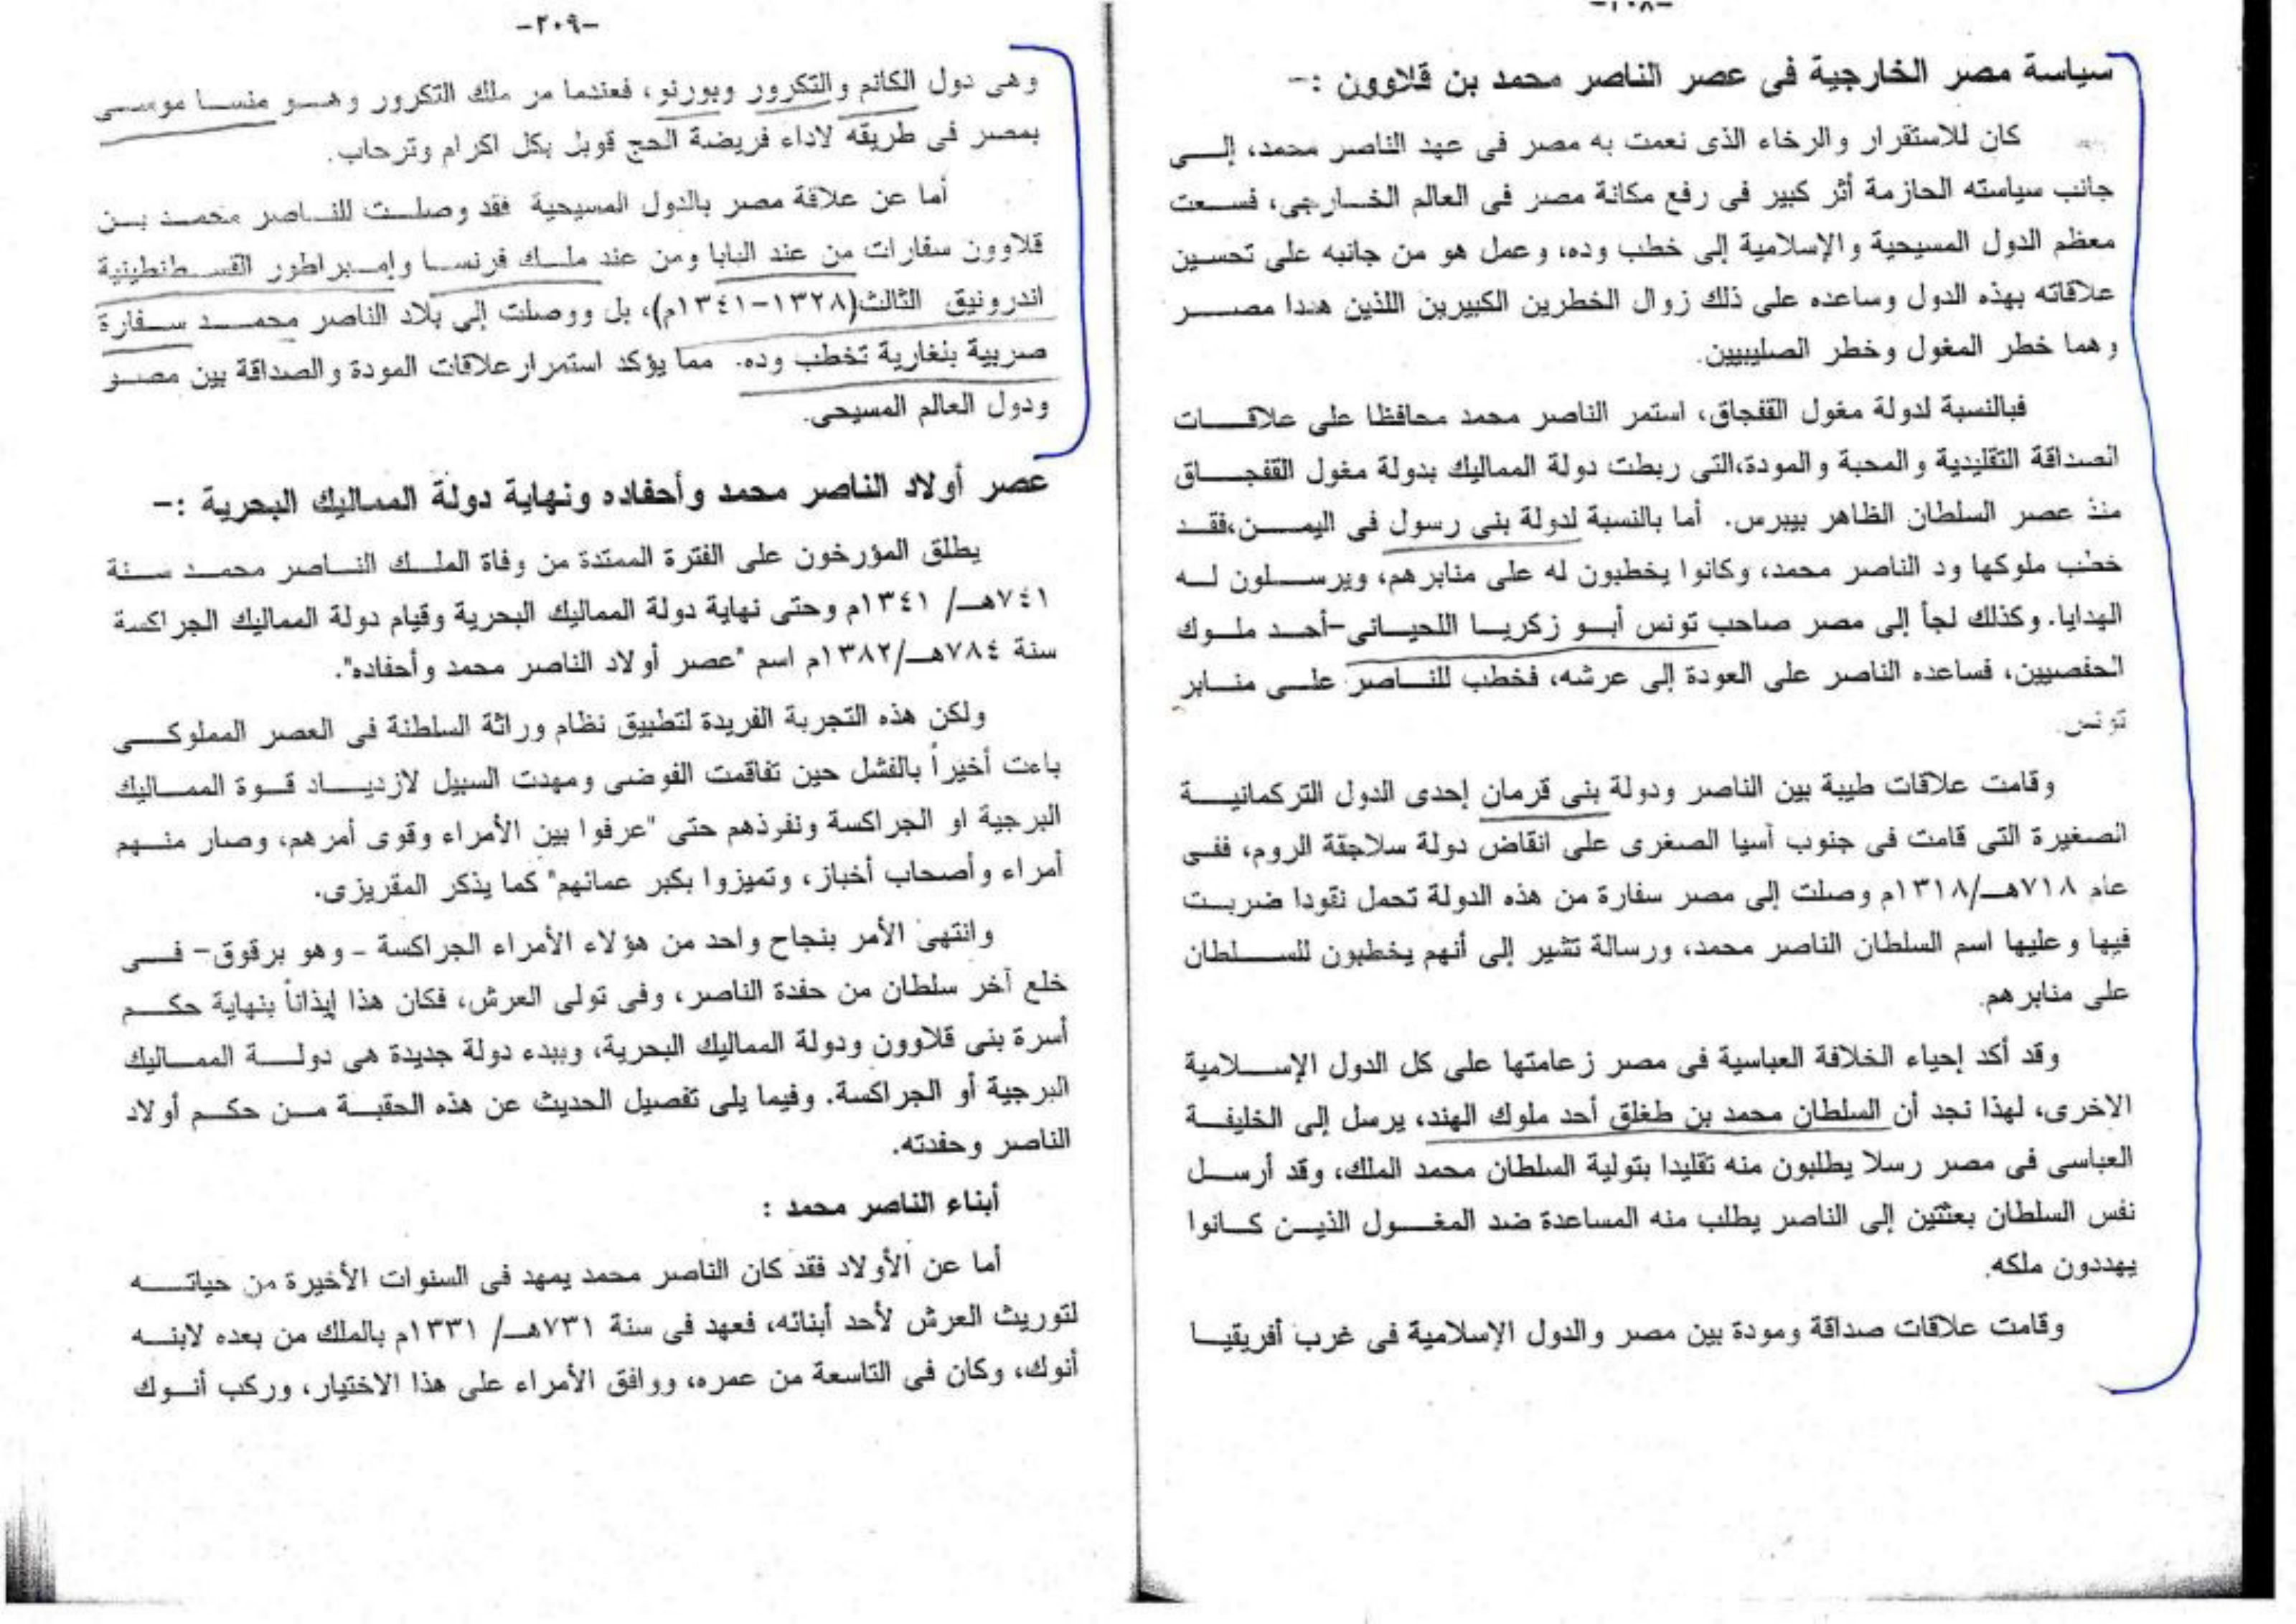 -٢٠٨-
سياسة مصر الخارجية فى عصر الناصر محمد بن قلاوون :-
كان للاستقرار والرخاء الذى نعمت به مصر فى عهد الناصر محمد، إلى
جانب سياسته الحازمة أثر كبير فى رفع مكانة مصر فى العالم الخارجى، فسعت
معظم الدول المسيحية والإسلامية إلى خطب وده، وعمل هو من جانبه على تحسين
علاقاته بهذه الدول وساعده على ذلك زوال الخطرين الكبيرين اللذين هددا مصر
وهما خطر المغول وخطر الصليبيين.
فبالنسبة لدولة مغول القفجاق، استمر الناصر محمد محافظا على علاقات
الصداقة التقليدية والمحبة والمودة،التى ربطت دولة المماليك بدولة مغول القفجاق
منذ عصر السلطان الظاهر بيبرس. أما بالنسبة لدولة بنى رسول فى اليمن،فقد
خطب ملوكها ود الناصر محمد، وكانوا يخطبون له على منابرهم، ويرسلون له
الهدايا. وكذلك لجأ إلى مصر صاحب تونس أبو زكريا اللحيانى-أحد ملوك
الحفصيين، فساعده الناصر على العودة إلى عرشه، فخطب للناصر على منابر
تونس.
وقامت علاقات طيبة بين الناصر ودولة بنى قرمان إحدى الدول التركمانية
الصغيرة التى قامت فى جنوب آسيا الصغرى على انقاض دولة سلاجقة الروم، ففى
عام ٧١٨هـ/١٣١٨م وصلت إلى مصر سفارة من هذه الدولة تحمل نقودا ضربت
فيها وعليها اسم السلطان الناصر محمد، ورسالة تشير إلى أنهم يخطبون للسلطان
على منابرهم.
وقد أكد إحياء الخلافة العباسية فى مصر زعامتها على كل الدول الإسلامية
الاخرى، لهذا نجد أن السلطان محمد بن طغلق أحد ملوك الهند، يرسل إلى الخليفة
العباسى فى مصر رسلا يطلبون منه تقليدا بتولية السلطان محمد الملك، وقد أرسل
نفس السلطان بعثتين إلى الناصر يطلب منه المساعدة ضد المغول الذين كانوا
يهددون ملكه.
وقامت علاقات صداقة ومودة بين مصر والدول الإسلامية فى غرب أفريقيا
-٢٠٩-
وهى دول الكانم والتكرور وبورنو، فعندما مر ملك التكرور وهو منسا موسى
بمصر فى طريقه لاداء فريضة الحج قوبل بكل اكرام وترحاب.
أما عن علاقة مصر بالدول المسيحية فقد وصلت للناصر محمد بن
قلاوون سفارات من عند البابا ومن عند ملك فرنسا وإمبراطور القسطنطينية
اندرونيق الثالث(١٣٢٨-١٣٤١م)، بل ووصلت إلى بلاد الناصر محمد سفارة
صربية بنغارية تخطب وده. مما يؤكد استمرار علاقات المودة والصداقة بين مصر
ودول العالم المسيحى.
عصر أولاد الناصر محمد وأحفاده ونهاية دولة المماليك البحرية :-
يطلق المؤرخون على الفترة الممتدة من وفاة الملك الناصر محمد سنة
٧٤١هـ/ ١٣٤١م وحتى نهاية دولة المماليك البحرية وقيام دولة المماليك الجراكسة
سنة ٧٨٤هـ/١٣٨٢م اسم "عصر أولاد الناصر محمد وأحفاده".
ولكن هذه التجربة الفريدة لتطبيق نظام وراثة السلطنة فى العصر المملوكى
باءت أخيراً بالفشل حين تفاقمت الفوضى ومهدت السبيل لازدياد قوة المماليك
البرجية او الجراكسة ونفرذهم حتى "عرفوا بين الأمراء وقوى أمرهم، وصار منهم
أمراء وأصحاب أخباز، وتميزوا بكبر عمائهم" كما يذكر المقريزى.
وانتهى الأمر بنجاح واحد من هؤلاء الأمراء الجراكسة - وهو برقوق- فى
خلع آخر سلطان من حفدة الناصر، وفى تولى العرش، فكان هذا إيذاناً بنهاية حكم
أسرة بنى قلاوون ودولة المماليك البحرية، وببدء دولة جديدة هى دولة المماليك
البرجية أو الجراكسة. وفيما يلى تفصيل الحديث عن هذه الحقبة من حكم أولاد
الناصر وحفدته.
أبناء الناصر محمد :
أما عن الأولاد فقد كان الناصر محمد يمهد فى السنوات الأخيرة من حياته
لتوريث العرش لأحد أبنائه، فعهد فى سنة ٧٣١هـ/ ١٣٣١م بالملك من بعده لابنه
أنوك، وكان فى التاسعة من عمره، ووافق الأمراء على هذا الاختيار، وركب أنوك